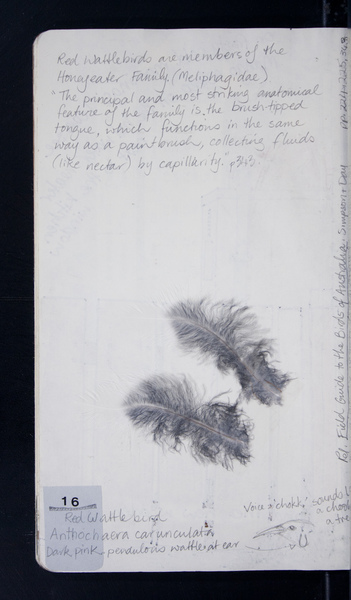 Red Wattlebirds are members of the
Honeyeater Family. (Meliphagidae)
"The principal and most striking anatomical
feature of the family is the brush-tipped
tongue, which functions in the same
way as a paintbrush, collecting fluids
(like nectar) by capillarity." p343.
Ref. Field Guide to the Birds of Australia. Simpson + Day
16
Red Wattlebird
Anthochaera carunculata
Dark pink pendulous wattles at ear
Voice a 'chokk', sounds